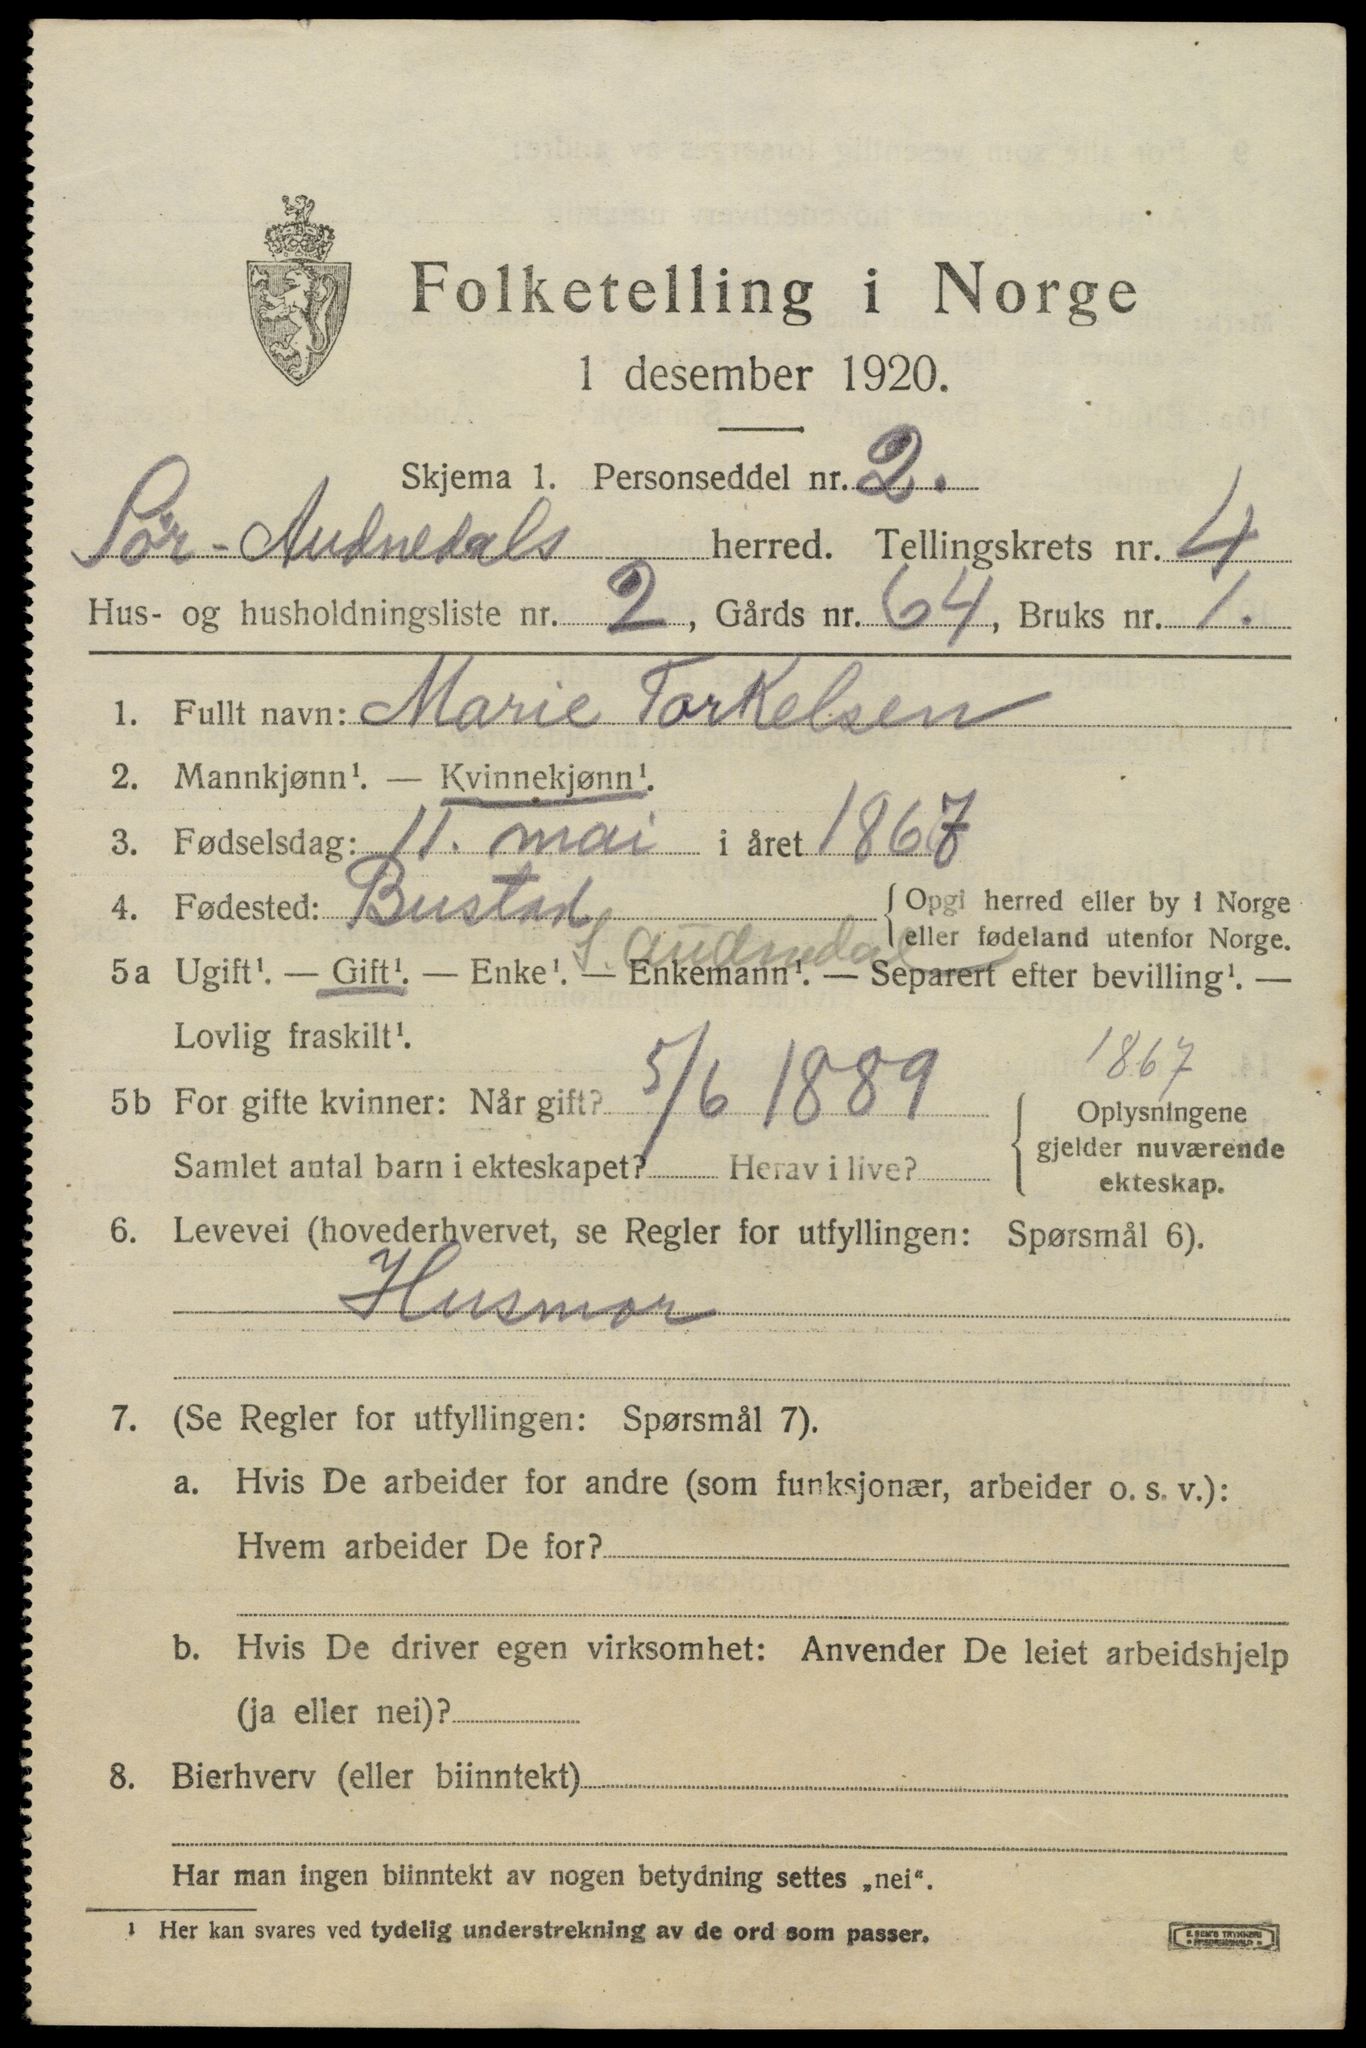 Folketelling i Norge
1 desember 1920.
Skjema 1. Personseddel nr. 2.
Sør-Audnedals herred. Tellingskrets nr. 4
Hus- og husholdningsliste nr. 2, Gårds nr. 64, Bruks nr. 1.
1. Fullt navn: Marie Torkelsen
2. Mannkjønn¹. — Kvinnekjønn¹.
3. Fødselsdag: 11. mai i året 1867
4. Fødested: Bustad { Opgi herred eller by i Norge
eller fødeland utenfor Norge.
S. Audnedal
5a Ugift¹. — Gift¹. — Enke¹. — Enkemann¹. — Separert efter bevilling¹. —
Lovlig fraskilt¹.
1867
5b For gifte kvinner: Når gift? 5/6 1889 { Oplysningene
gjelder nuværende
Samlet antal barn i ekteskapet? Herav i live?
ekteskap.
6. Levevei (hovederhvervet, se Regler for utfyllingen: Spørsmål 6).
Husmor
7. (Se Regler for utfyllingen: Spørsmål 7).
a. Hvis De arbeider for andre (som funksjonær, arbeider o. s. v.):
Hvem arbeider De for?
b. Hvis De driver egen virksomhet: Anvender De leiet arbeidshjelp
(ja eller nei)?
8. Bierhverv (eller biinntekt)
Har man ingen biinntekt av nogen betydning settes „nei“.
¹ Her kan svares ved tydelig understrekning av de ord som passer.